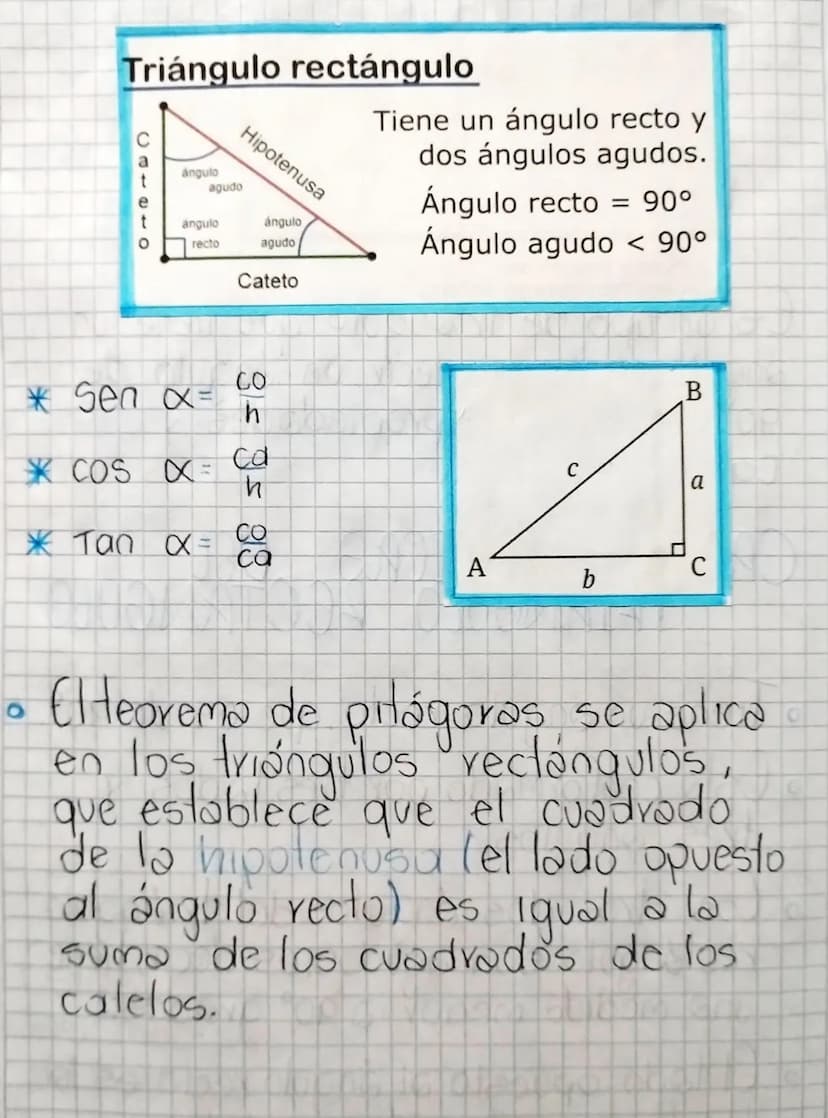 Triángulo rectángulo
Cateto
Hipotenusa
ángulo
agudo
ángulo
recto
ángulo
agudo
Cateto
Tiene un ángulo recto y
dos ángulos agudos.
Ángulo recto = 90°
Ángulo agudo < 90°
* Sen α = co/h
* cos α = ca/h
* Tan α = co/ca
B
c
a
A
b
C
• El teorema de pitágoras se aplica
en los triángulos rectángulos,
que establece que el cuadrado
de la hipotenusa (el lado opuesto
al ángulo recto) es igual a la
suma de los cuadrados de los
catetos.